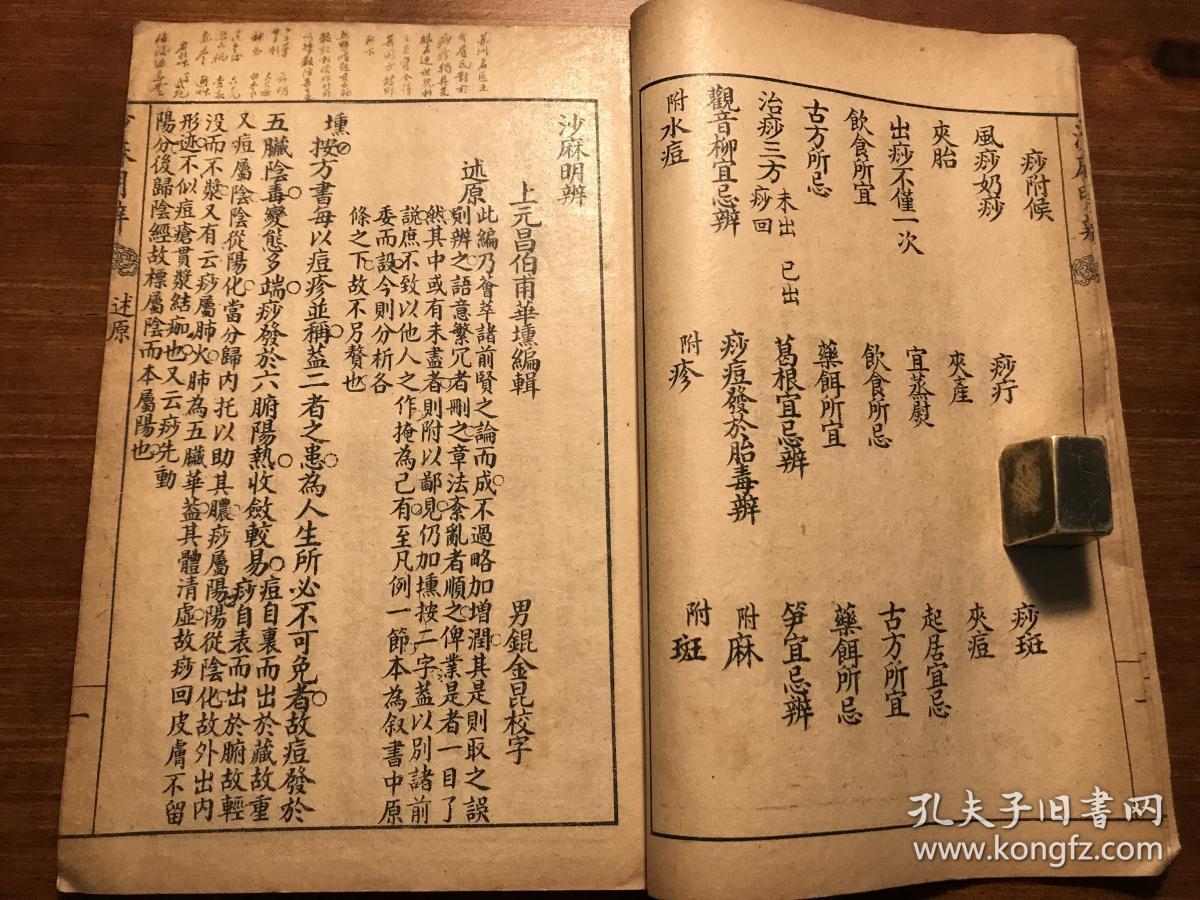 痧附候　痧疔　痧斑
風痧奶痧　夾產　夾痘
夾胎　宜蒸熨　起居宜忌
出痧不僅一次　飲食所忌　古方所宜
飲食所宜　藥餌所宜　藥餌所忌
古方所忌　葛根宜忌辨　笋宜忌辨
治痧三方 未出 已出 痧回　痧痘發於胎毒辨　附麻
觀音柳宜忌辨　附疹　附斑
附水痘
沙麻明辨
上元昌伯甫華壎編輯　男錕金昆校字
述原
此編乃薈萃諸前賢之論而成不過略加增潤其是則取之誤
則辨之語意繁冗者刪之章法紊亂者順之俾業是者一目了
然其中或有未盡者則附以鄙見仍加壎按二字蓋以別諸前
說庶不致以他人之作掩為己有至凡例一節本為叙書中原
委而設今則分析各
條之下故不另贅也
壎按方書每以痘疹並稱蓋二者之患為人生所必不可免者故痘發於
五臟陰毒變態多端痧發於六腑陽熱收斂較易痘自裏而出於藏故重
又痘屬陰陰從陽化當分歸內托以助其膿痧屬陽陽從陰化故外出內
沒而不漿又有云痧屬肺火肺為五臟華蓋其體清虛故痧回皮膚不留
形迹不似痘瘡貫漿結痂也又云痧先動
陽分後歸陰經故標屬陰而本屬陽也
述原
一
孔夫子旧书网
www.kongfz.com